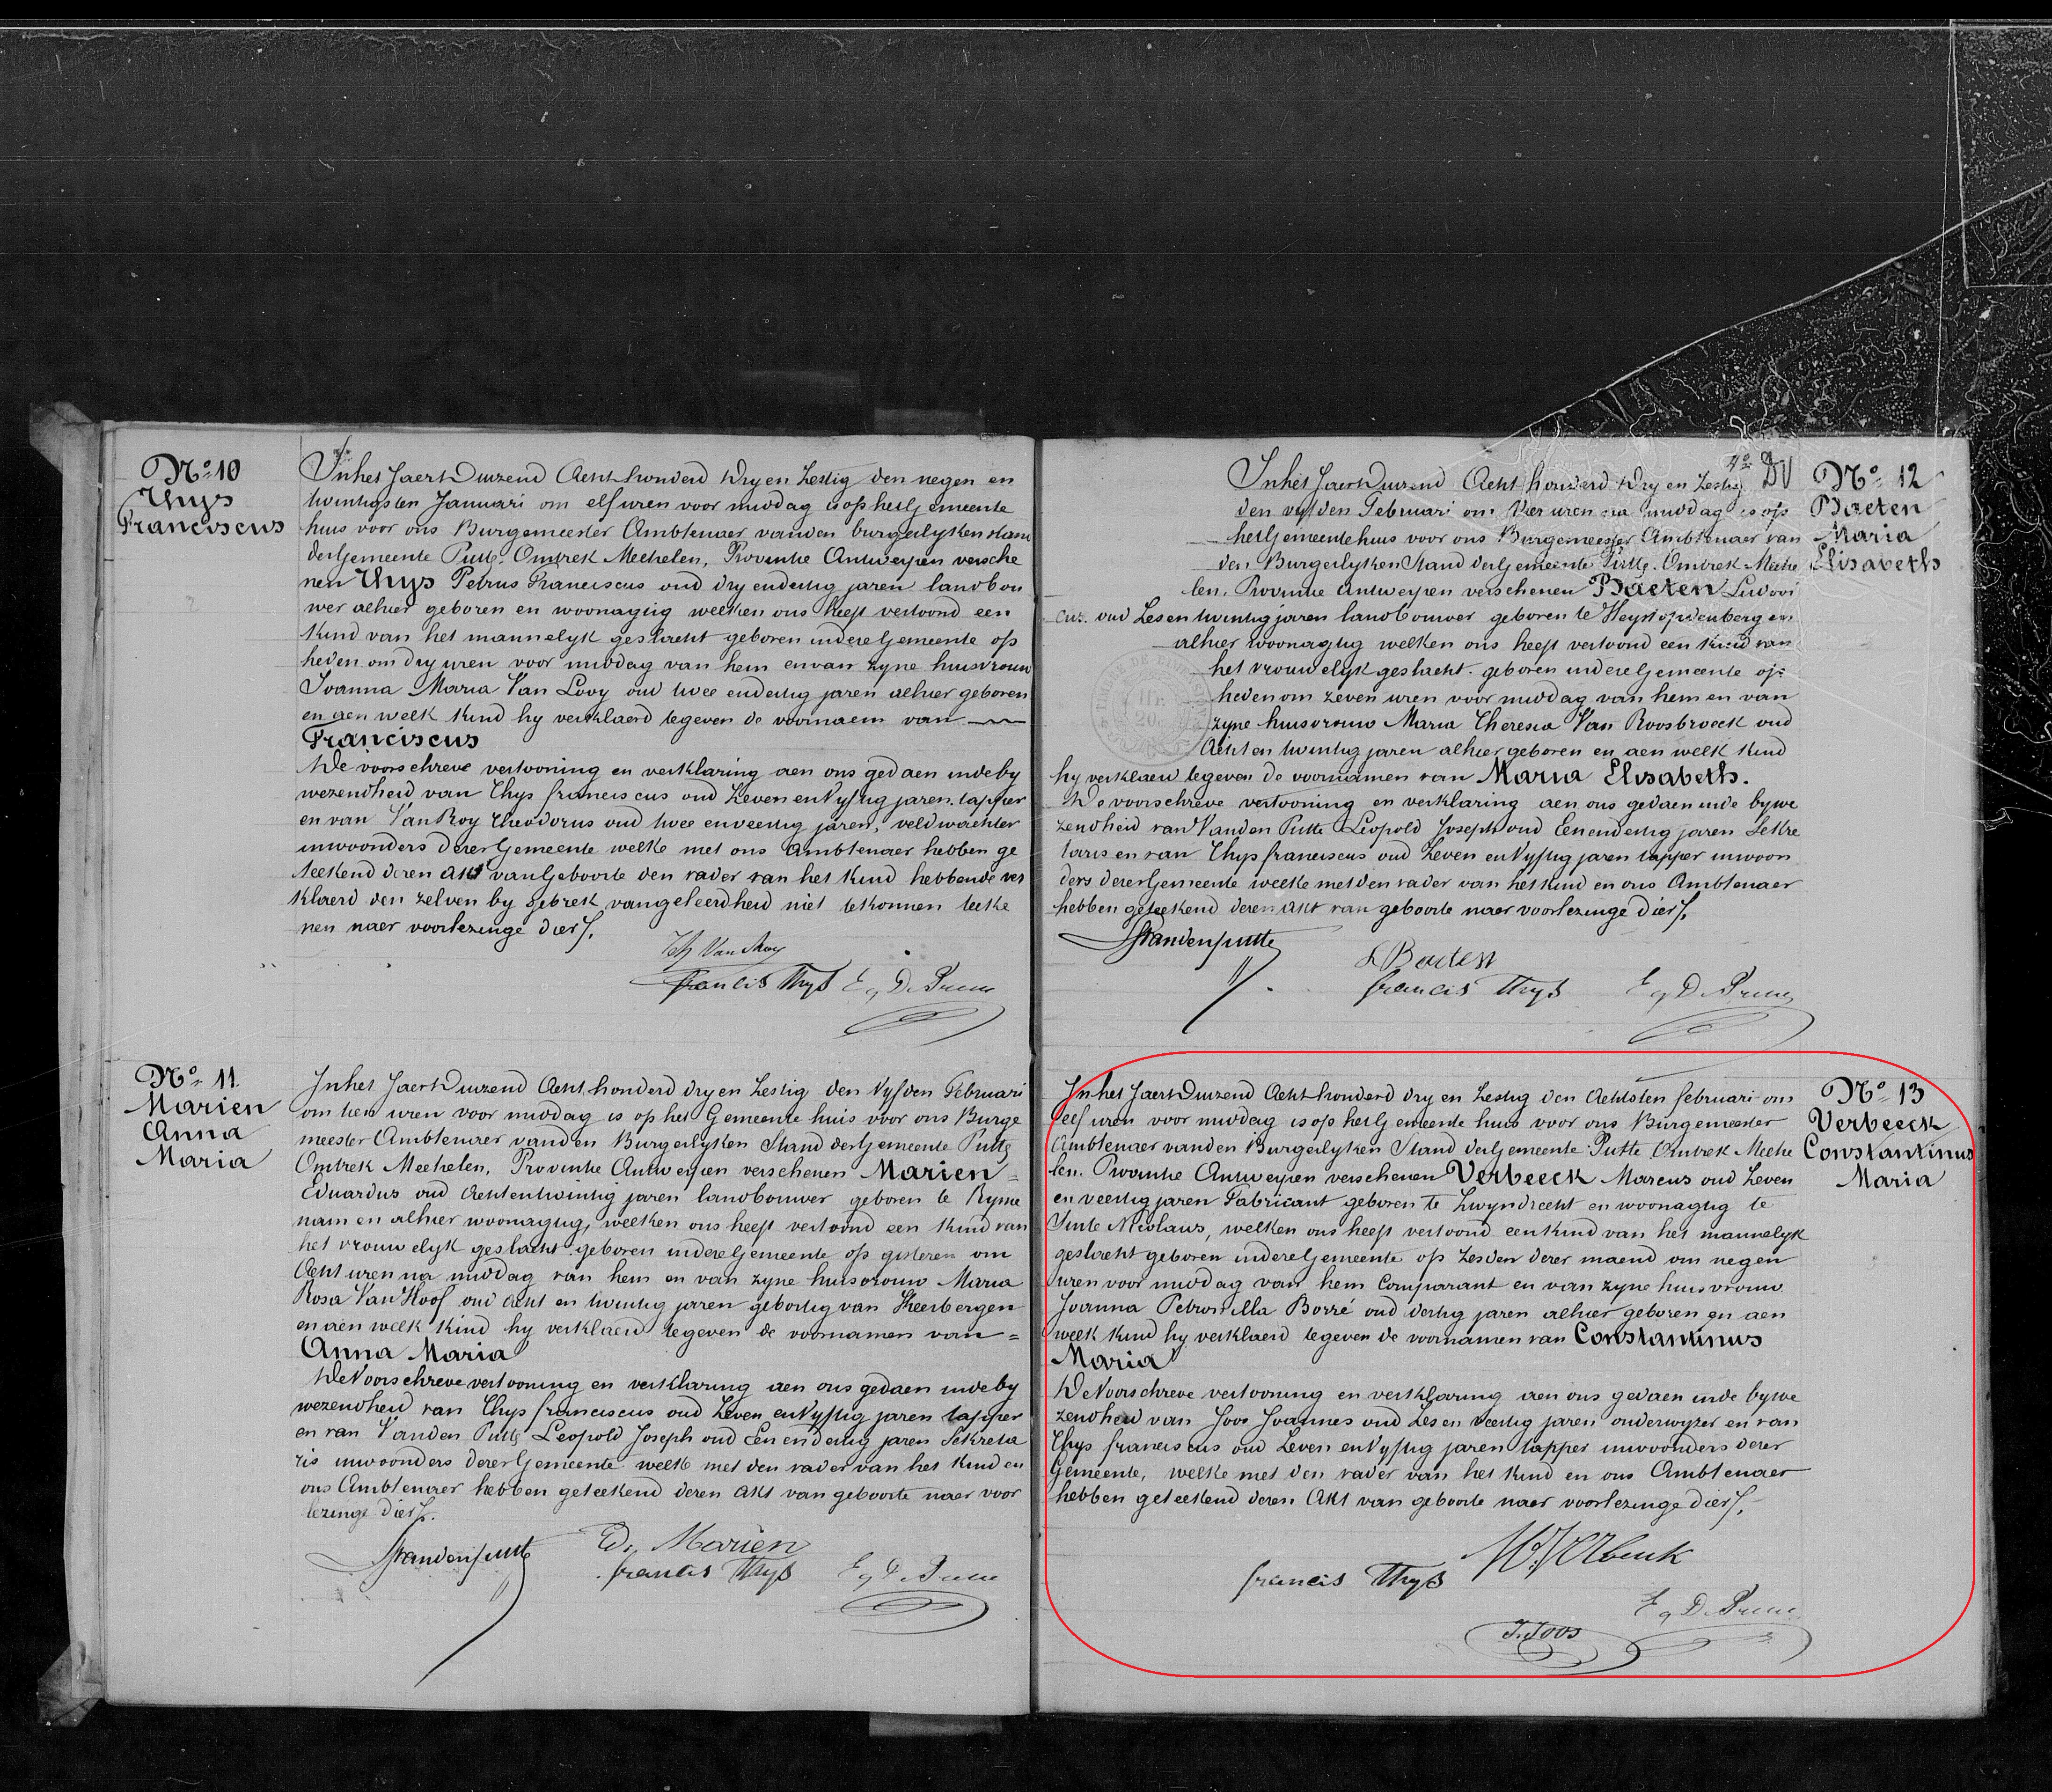 N° 10
Thys
Franciscus
In het Jaer Duizend Acht honderd Dry en Zestig den negen en
twintigsten Januari om elf uren voor middag is op het gemeente
huis voor ons Burgemeester Ambtenaer van den burgerlyken stand
der Gemeente Putte, Omtrek Mechelen, Provintie Antwerpen versche
nen Thys Petrus Franciscus oud dry en dertig jaren landbou
wer alhier geboren en woonagtig welken ons heeft vertoond een
kind van het mannelyk geslacht geboren in dere Gemeente op
heden om dry uren voor middag van hem en van zyne huisvrouw
Joanna Maria Van Looy oud twee en dertig jaren alhier geboren
en aen welk kind hy verklaerd te geven de voornaem van
Franciscus
De voorschreve vertooning en verklaring aen ons gedaen in de by
wezendheid van Thys franciscus oud Zeven en Vyftig jaren tapper
en van Van Roy Theodorus oud twee en veertig jaren, veldwachter
inwoonders derer Gemeente welke met ons Ambtenaer hebben ge
teekend deren Akt van Geboorte den vader van het kind hebbende ver
klaerd den zelven by gebrek van geleerdheid niet te konnen teeke
nen naer voorlezinge dier/.
Th Van Roy
francis Thys E g D. Prum
N° 11.
Marien
Anna
Maria
In het Jaer Duizend Acht honderd dry en Zestig den Vyfden Februari
om tien uren voor middag is op het Gemeente huis voor ons Burge
meester Ambtenaer van den Burgerlyken Stand der Gemeente Putte
Omtrek Mechelen, Provintie Antwerpen verschenen Marien =
Eduardus oud Acht en twintig jaren landbouwer geboren te Ryme
nam en alhier woonagtig, welken ons heeft vertoond een kind van
het vrouwelyk geslacht geboren in dere Gemeente op gisteren om
Acht uren na middag van hem en van zyne huisvrouw Maria
Rosa Van Hoof oud Acht en twintig jaren geboortig van Keerbergen
en aen welk kind hy verklaerd te geven de voornamen van =
Anna Maria
De Voorschreve vertooning en verklaring aen ons gedaen in de by
wezendheid van Thys franciscus oud Zeven en Vyftig jaren tapper
en van Vanden Putte Leopold Joseph oud Een en dertig jaren Sekreta
ris inwoonders derer Gemeente welke met den vader van het kind en
ons Ambtenaer hebben geteekend deren Akt van geboorte naer voor
lezinge dier/.
Vandenputte Ed. Marien
francis Thys E g D. Prum
4e DV
N° 12
Baeten
Maria
Elisabeth
In het Jaer Duizend Acht honderd Dry en Zestig
den vyfden Februari om Vier uren na middag is op
het Gemeentehuis voor ons Burgemeester Ambtenaer van
den Burgerlyken Stand der Gemeente Putte, Omtrek Meche
len, Provintie Antwerpen verschenen Baeten Ludovi
cus oud Zes en twintig jaren landbouwer geboren te Heyst op den berg en
alhier woonagtig welken ons heeft vertoond een kind van
het vrouwelyk geslacht geboren in dere Gemeente op
heden om zeven uren voor middag van hem en van
zyne huisvrouw Maria Theresia Van Roosbroeck oud
Acht en twintig jaren alhier geboren en aen welk kind
hy verklaerd te geven de voornamen van Maria Elisabeth.
De voorschreve vertooning en verklaring aen ons gedaen in de bywe
zendheid van Vanden Putte Leopold Joseph oud Een en dertig jaren Sekre
taris en van Thys franciscus oud Zeven en Vyftig jaren tapper inwoon
ders derer Gemeente welke met den vader van het kind en ons Ambtenaer
hebben geteekend deren Akt van geboorte naer voorlezinge dier/.
Vandenputte
L Baeten
francis Thys E g D. Prum
N° 13
Verbeeck
Constantinus
Maria
In het Jaer Duizend Acht honderd dry en Zestig den Achtsten februari om
elf uren voor middag is op het Gemeente huis voor ons Burgemeester
Ambtenaer van den Burgerlyken Stand der Gemeente Putte Omtrek Meche
len. Provintie Antwerpen verschenen Verbeeck Marcus oud Zeven
en veertig jaren Fabricant geboren te Zwyndrecht en woonagtig te
Sinte Nicolaus, welken ons heeft vertoond een kind van het mannelyk
geslacht geboren in dere Gemeente op Zesden derer maend om negen
uren voor middag van hem Comparant en van zyne huisvrouw
Joanna Petronilla Borré oud dertig jaren alhier geboren en aen
welk kind hy verklaerd te geven de voornamen van Constantinus
Maria
De Voorschreve vertooning en verklaring aen ons gedaen in de bywe
zendheid van Joos Joannes oud Zes en Veertig jaren onderwyzer en van
Thys franciscus oud Zeven en Vyftig jaren tapper inwoonders derer
Gemeente, welke met den vader van het kind en ons Ambtenaer
hebben geteekend deren Akt van geboorte naer voorlezinge dier/.
M. Verbeeck
francis Thys
E g D. Prum
J. Joos